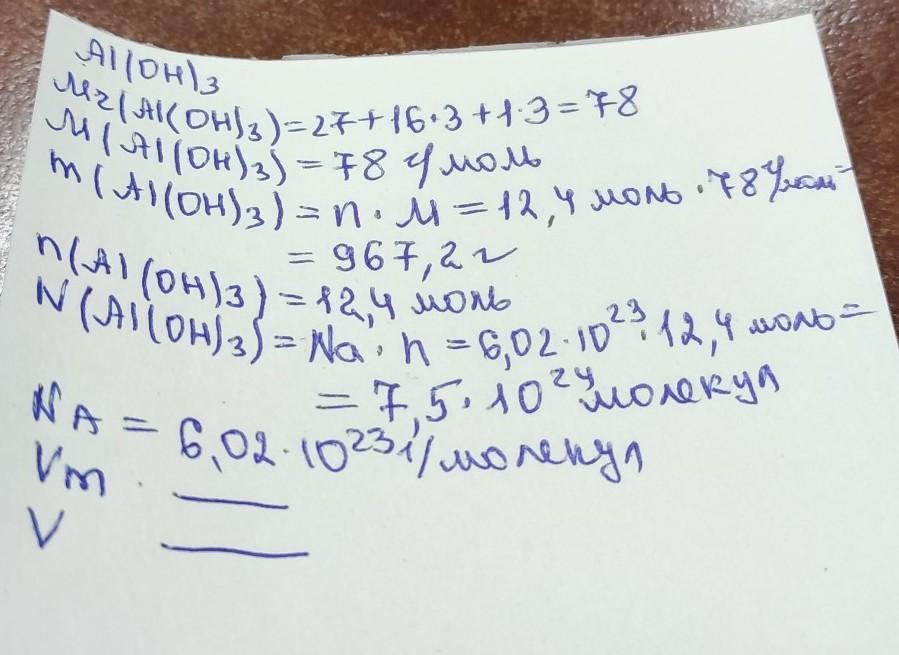 Al(OH)3
Mr(Al(OH)3)=27+16·3+1·3=78
M(Al(OH)3)=78 г/моль
m(Al(OH)3)=n·M=12,4 моль·78 г/моль=
=967,2 г
n(Al(OH)3)=12,4 моль
N(Al(OH)3)=Na·n=6,02·10²³·12,4 моль=
=7,5·10²⁴ молекул
NA=6,02·10²³ 1/молекул
Vm —
V —